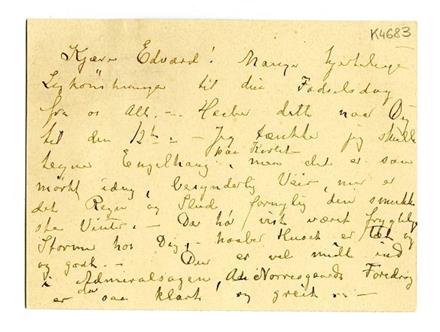 K4683
Kjære Edvard! Mange hjertelige
Lykönskninger til din Fødselsdag
fra os Alle. – Haaber dette naar Dig
til den 12te. – Jeg tænkte jeg skulde
tegne Engelhaug paa Kortet, men det er saa
mörkt idag, besynderlig Veir, nu er
det Regn og Slud, forresten den smukke
ste Vinter. – Da har vist været frygtelig
Storme hos Dig, – haaber Huset er tæt og
og godt. – Du er vel midt ind
i Admiralsagen, Nörregaards Foredrag
er da saa klart og greit. –